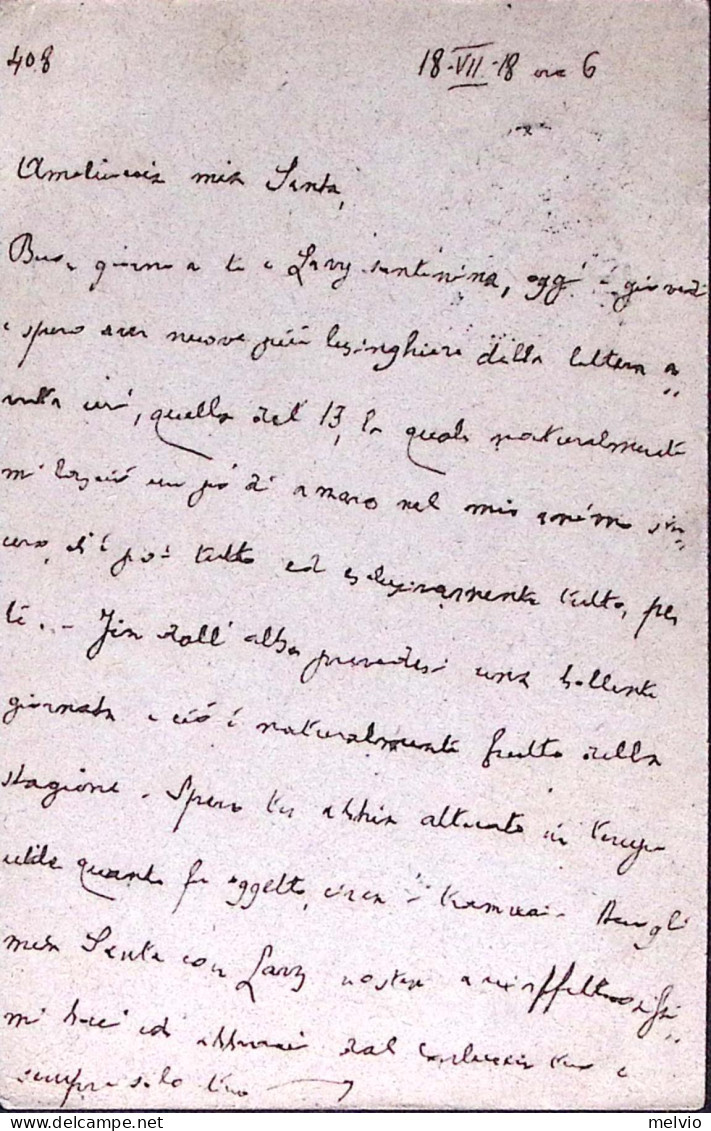 408
18-VII-18 ore 6
mia Santa,
Buon giorno a te e Lavy santinina, oggi è giovedì
e spero aver nuove più lusinghiere della lettera a
quella del 13, la quale naturalmente
mi lasciò un pò di amaro nel mio animo sin=
cero, di poi tutto ed esclusivamente tutto, per
te. - Fin dall'alba prevedesi una bollente
giornata e ciò è naturalmente frutto della
stagione. Spero tu abbia attuato in tempo
utile quanto fu oggetto, circa i tramvai.
mia Santa con Lavy nostra affettuosissi=
mi baci ed abbracci dal tuo e
sempre solo tuo
melvio